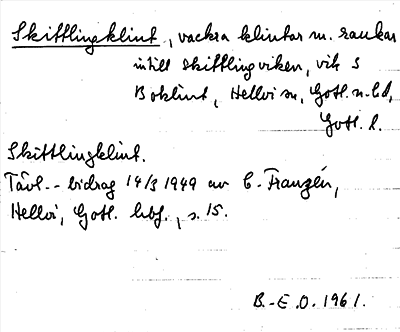 Skittlingklint, vackra klintar m. raukar
intill Skittlingviken, vik S
Boklint, Hellvi sn, Gotl. n. hd,
Gotl. l.
Skittlingklint.
Tävl.-bidrag 14/3 1949 av C. Franzén,
Hellvi, Gotl. hbf., s. 15.
B.-E. O. 1961.